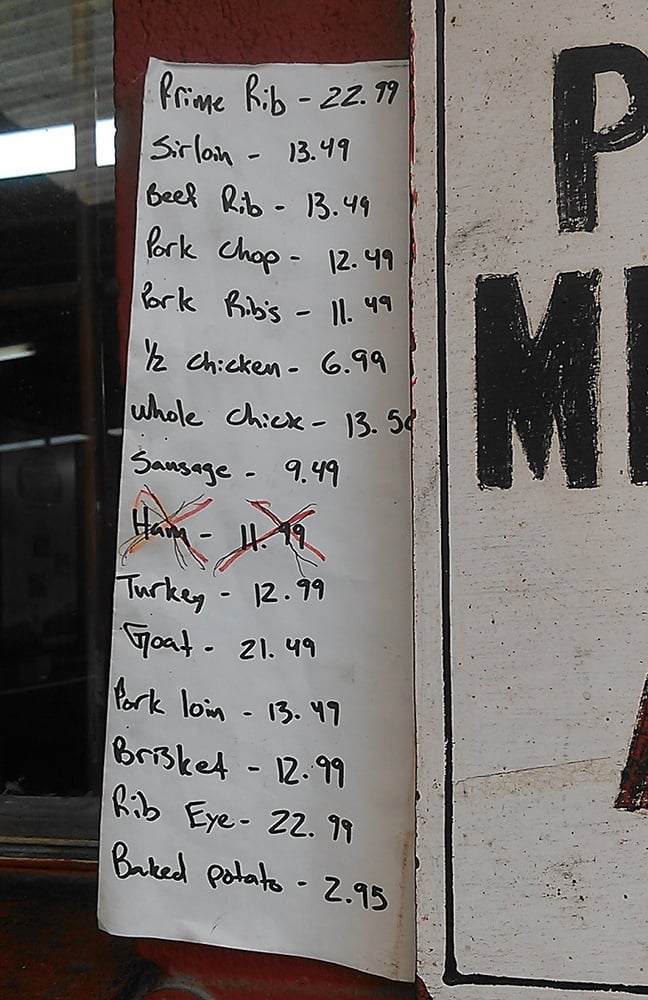 Prime Rib - 22.99
Sirloin - 13.49
Beef Rib - 13.49
Pork Chop - 12.49
Pork Rib's - 11.49
1/2 Chicken - 6.99
whole chick - 13.50
Sausage - 9.49
Ham - 11.99
Turkey - 12.99
Goat - 21.49
Pork loin - 13.49
Brisket - 12.99
Rib Eye - 22.99
Baked potato - 2.95
P
M